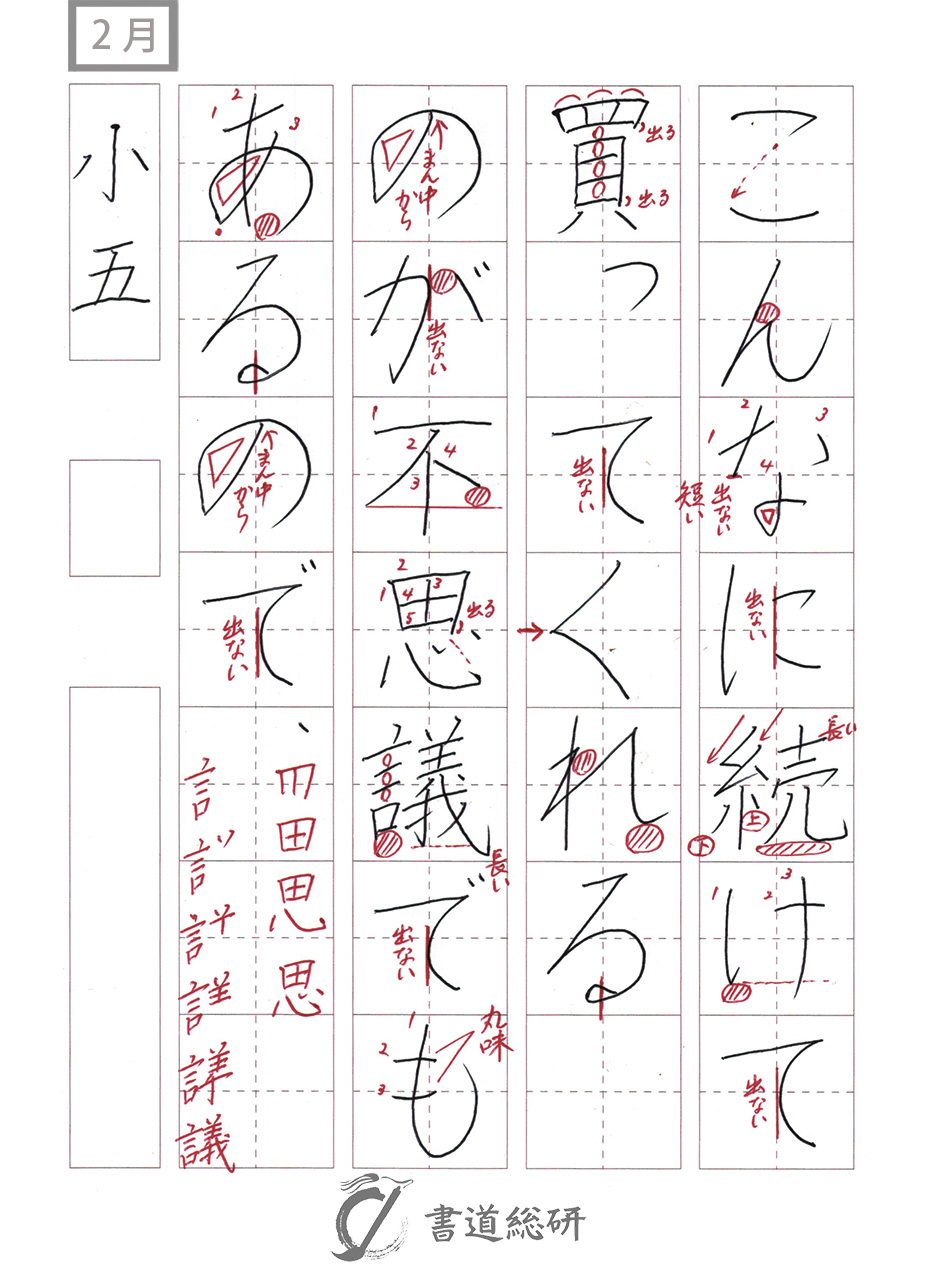 2月
こんなに続けて
出ない
短い
出ない
長い
上
下
出ない
買ってくれる
出る
出る
出ない
のが不思議でも
まん中から
出ない
出る
長い
出ない
丸味
あるのでヽ
まん中から
出ない
皿田思思
言訁詳議
小五
書道総研